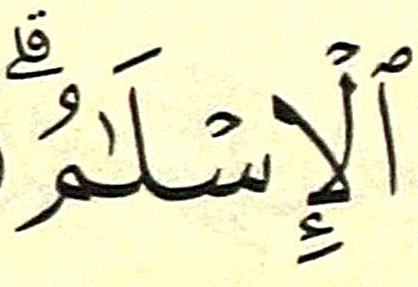 ٱلْإِسْلَٰمُ ۗ